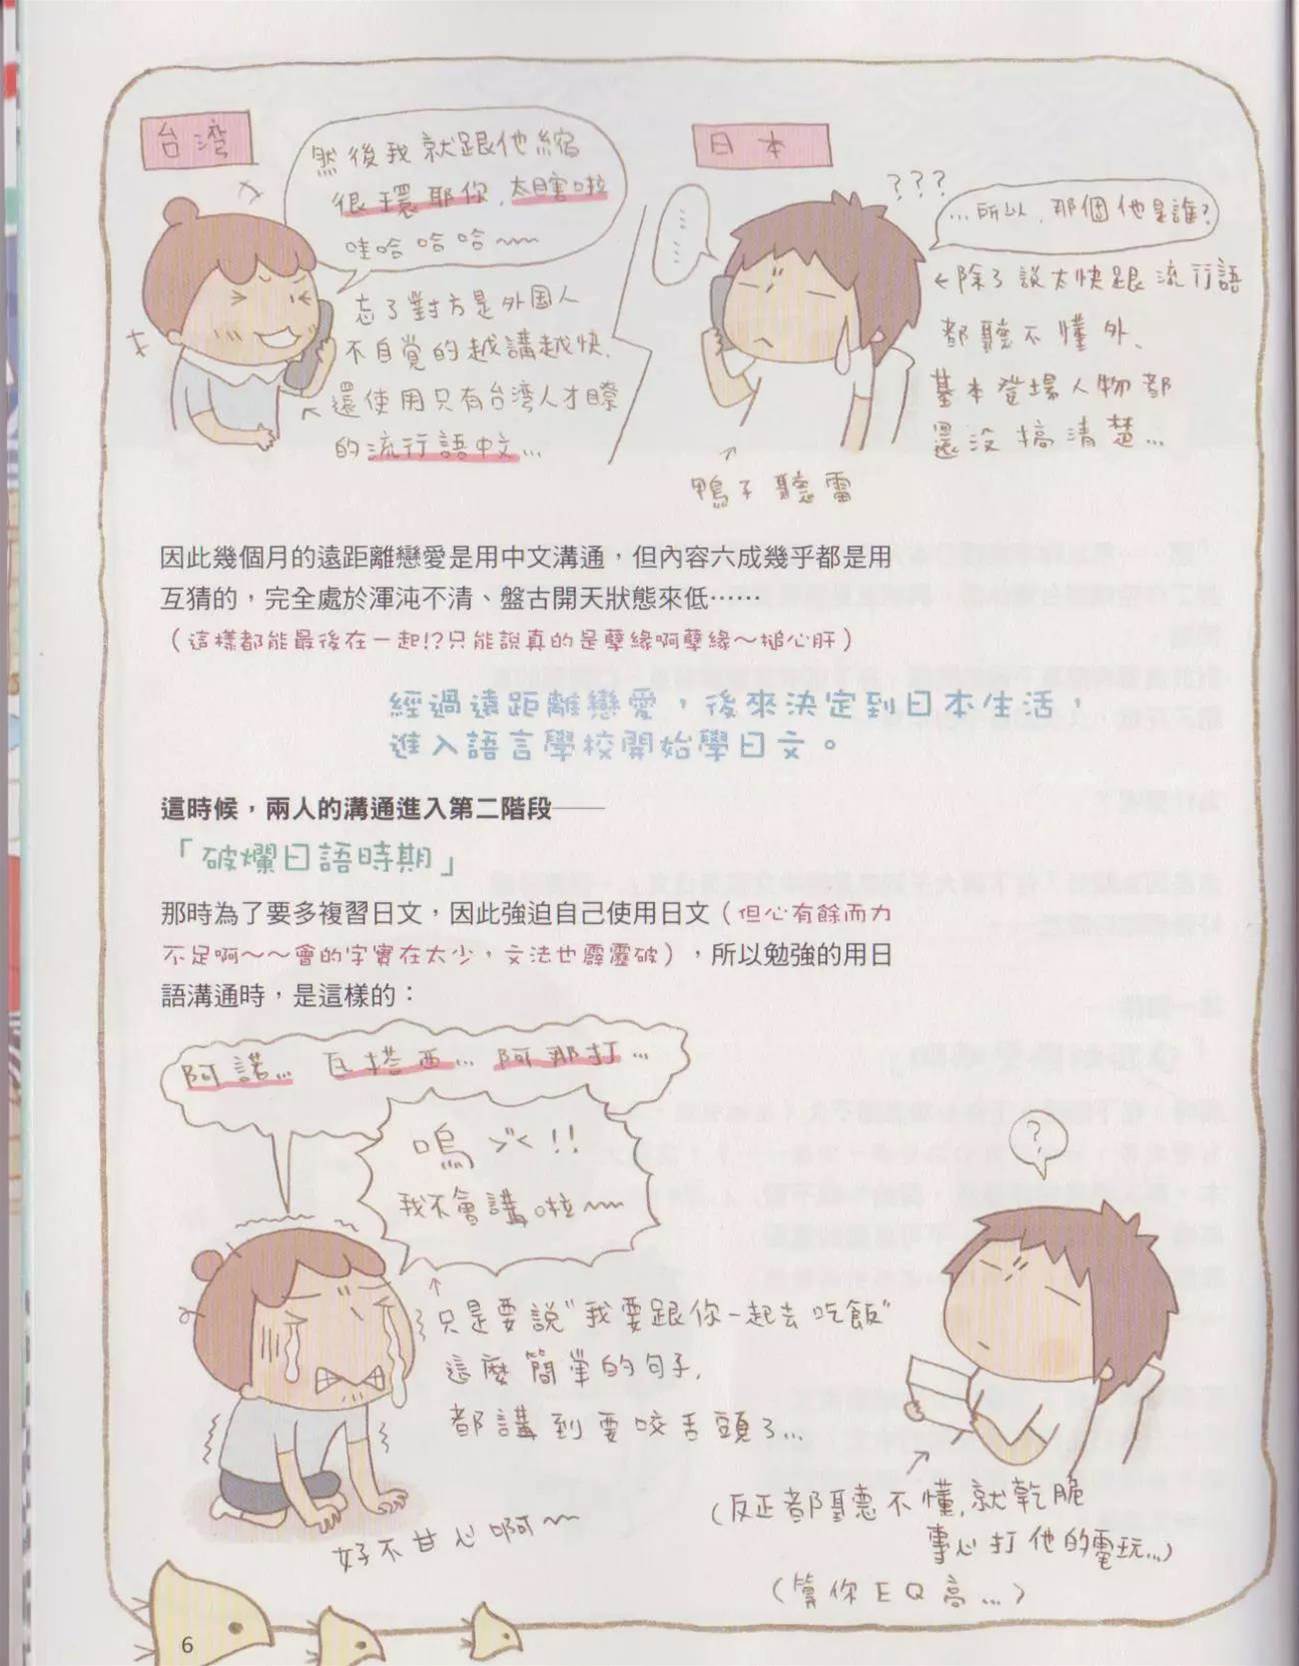 台灣
然後我就跟他縮
很環耶你，太瞎啦
哇哈哈哈～～
忘了對方是外國人
不自覺的越講越快，
還使用只有台灣人才瞭
的流行語中文…
日本
……
???
…所以，那個他是誰?
←除了說太快跟流行語
都聽不懂外、
基本登場人物都
還沒搞清楚…
鴨子聽雷
因此幾個月的遠距離戀愛是用中文溝通，但內容六成幾乎都是用
互猜的，完全處於渾沌不清、盤古開天狀態來低……
（這樣都能最後在一起!?只能說真的是孽緣啊孽緣～搥心肝）
經過遠距離戀愛，後來決定到日本生活，
進入語言學校開始學日文。
這時候，兩人的溝通進入第二階段——
「破爛日語時期」
那時為了要多複習日文，因此強迫自己使用日文（但心有餘而力
不足啊～～會的字實在太少，文法也霹靂破），所以勉強的用日
語溝通時，是這樣的：
阿諾… 瓦塔西… 阿那打…
嗚
!!
我不會講啦～～
?
只是要說"我要跟你一起去吃飯"
這麼簡單的句子，
都講到要咬舌頭了…
好不甘心啊～～
(反正都聽不懂，就乾脆
專心打他的電玩…)
(算你EQ高…)
6